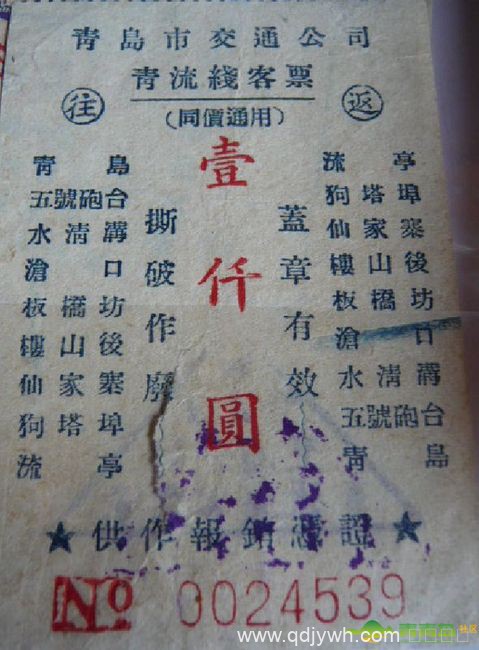 青島市交通公司
青流綫客票
(同價通用)
往
返
青島
五號砲台
水清溝
滄口
板橋坊
樓山後
仙家寨
狗塔埠
流亭
撕破作廢
壹仟圓
蓋章有效
流亭
狗塔埠
仙家寨
樓山後
板橋坊
滄口
水清溝
五號砲台
青島
★供作報銷憑證★
No 0024539
www.qdjywh.com
社区